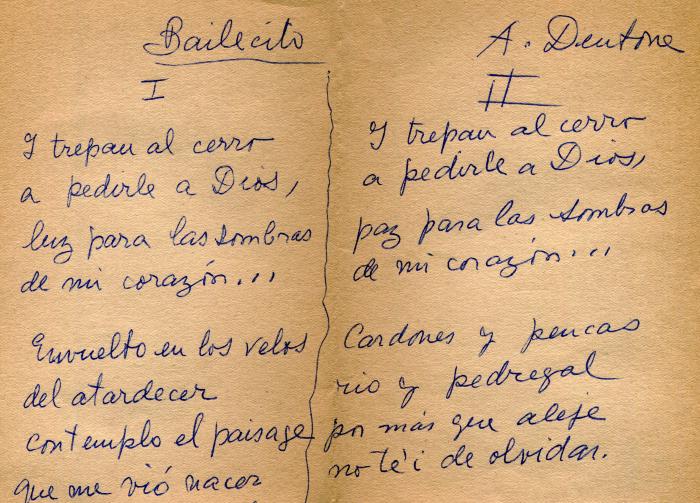 Bailecito
A. Dentone
I
Y trepan al cerro
a pedirle a Dios,
luz para las sombras
de mi corazón...
Envuelto en los velos
del atardecer
contemplo el paisage
que me vió nacer
II
Y trepan al cerro
a pedirle a Dios,
paz para las sombras
de mi corazón...
Cardones y pencas
rio y pedregal
por más que aleje
no te'i de olvidar.